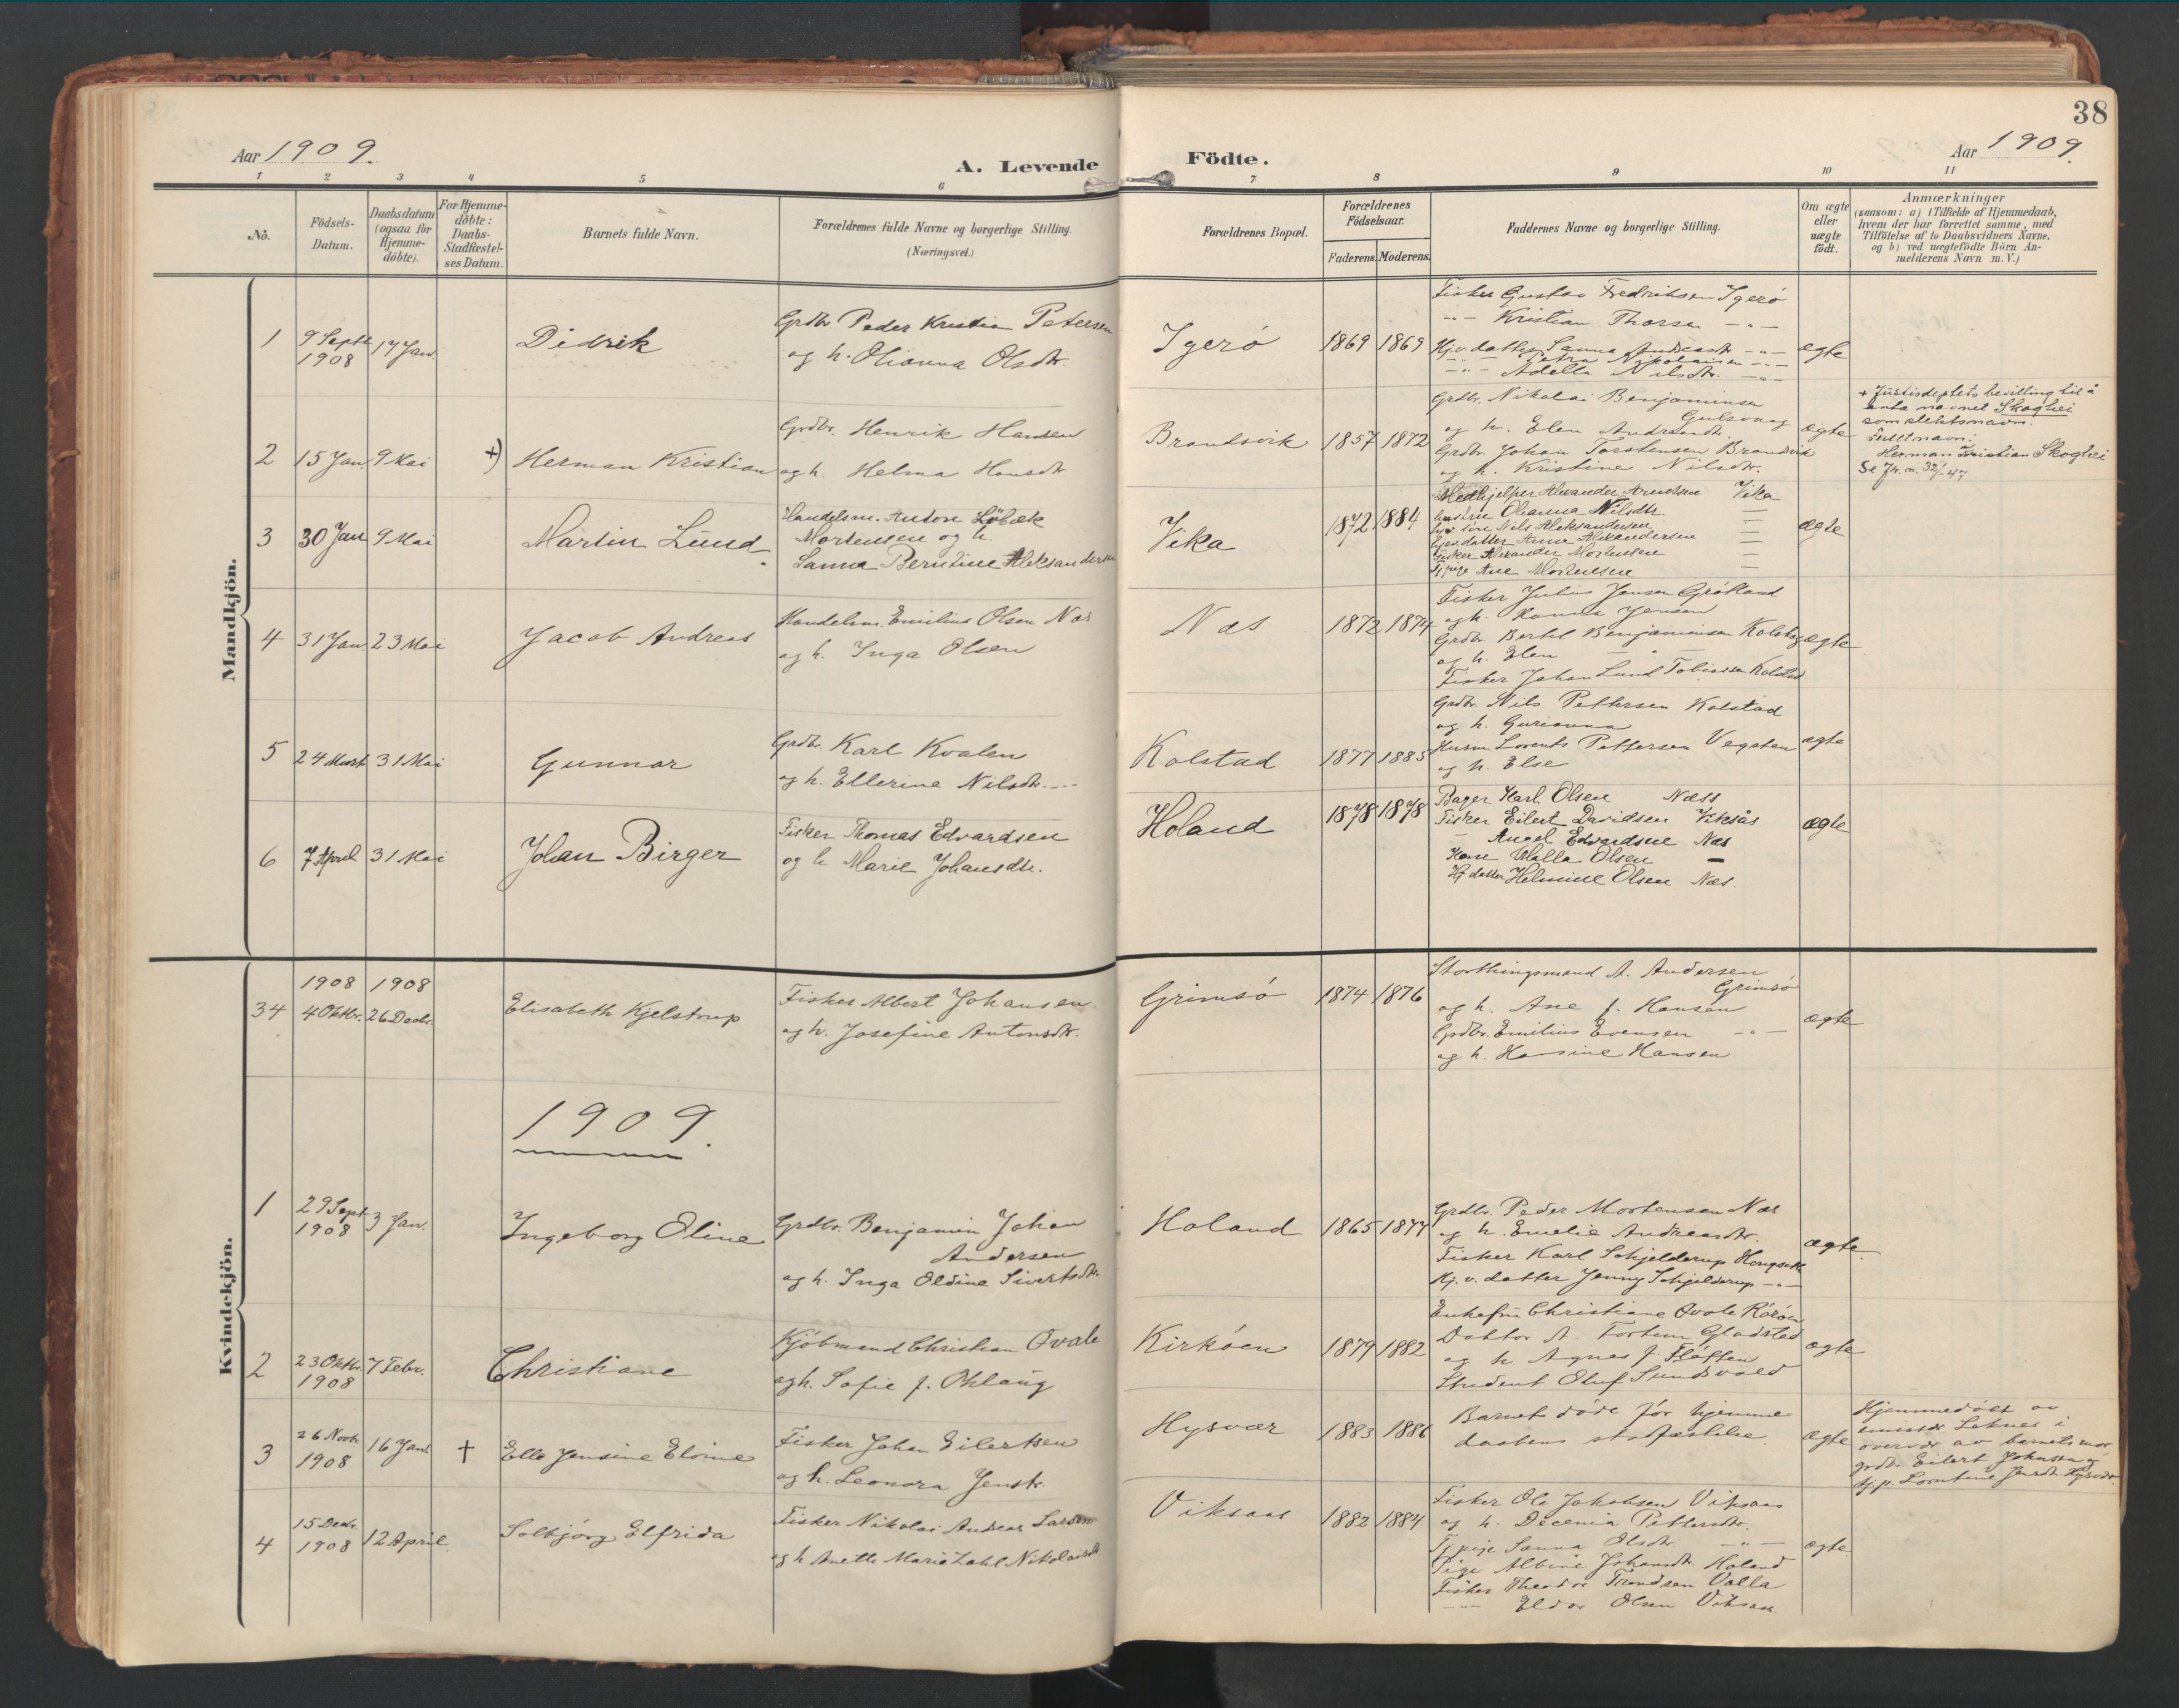 38
Aar 1909.
A. Levende Födte.
Aar 1909.
1 2 3 4 5 6 7 8 9 10 11
No.
Födsels-
Datum.
Daabsdatum
(ogsaa for
Hjemme-
döbte).
For Hjemme-
döbte:
Daabs-
Stadfestel-
ses Datum.
Barnets fulde Navn.
Forældrenes fulde Navne og borgerlige Stilling.
(Næringsvei.)
Forældrenes Bopæl.
Forældrenes
Födselsaar.
Faderens. Moderens.
Faddernes Navne og borgerlige Stilling.
Om ægte
eller
uægte
födt.
Anmærkninger
(saasom: a) i Tilfælde af Hjemmedaab,
hvem der har forrettet samme, med
Tilföielse af to Daabsvidners Navne,
og b) ved uægtefödte Börn An-
melderens Navn m. V.)
Mandkjön.
1
9 Septb.
1908
17 Jan.
Didrik
Grdbr. Peder Kristian Petersen
og h. Olianna Olsdtr.
Igerö
1869 1869
Fisker Gustav Fredriksen Igerö
-"- Kristian Thorsen -"-
Hj.v.datter Sanna Andreasdtr. -"-
-"- Petra Nikolaisen -"-
-"- Adella Nilsdtr. -"-
ægte
2
15 Jan. 9 Mai
+)
Herman Kristian
Grdbr. Henrik Hansen
og h. Helma Hansdtr.
Brandsvik
1857 1872
Grdbr. Nikolai Benjaminsen
Gulsvaag
og h. Elen Andreasdtr.
Grdbr. Johan Torstensen Brandsvik
og h. Kristine Nilsdtr.
ægte
+ Justisdeptets bevilling til å
anta navnet Skoghei
som slektsnavn.
Fullt navn:
Herman Kristian Skoghei
Se Jr. n. 32/-47
3
30 Jan 9 Mai
Martin Lund
Handelsm. Anton Löbæk
Mortensen og h.
Sanna Berntine Aleksandersen
Vika
1872 1884
Medhjelper Alexander Arntsen Vika
hustru Olianna Nilsdtr. —
hjv sön Nils Aleksandersen —
hjev. datter Anna Alexandersen —
Fisker Alexander Mortensen —
Tj pige Ane Mortensen —
ægte
4
31 Jan. 23 Mai
Jacob Andreas
Handelsm. Emilius Olsen Næs
og h. Inga Olsen
Næs
1872 1874
Fisker Julius Jensen Grökland
og h. Hanna Jensen
Grdbr. Bertel Benjaminsen Kolstad
og h. Elen — —
Fisker Johan Lund Tobiassen Kolstad
ægte
5
24 Marts 31 Mai
Gunnar
Grdbr. Karl Kvalen
og h. Ellerine Nilsdtr.
Kolstad
1877 1885
Grdbr. Nils Pettersen Kolstad
og h. Gurianna
Husm. Lorents Pettersen Vegsten
og h. Else
ægte
6
7 April 31 Mai
Johan Birger
Fisker Thomas Edvardsen
og h Marie Johansdtr.
Holand
1878 1878
Bager Karl Olsen Næss
Fisker Eilert Davidsen Viksås
— Angel Edvardsen Næs
Kone Walla Olsen —
Hj datter Helmine Olsen Næs.
ægte
Kvindekjön.
34
1908 1908
4 Oktbr. 26 Decbr.
Elisabeth Kjelstrup
Fisker Albert Johansen
og h. Josefine Antonsdtr.
Grimsö
1874 1876
Storthingsmand A. Andersen
Grimsö
og h. Ane f. Hansen
Grdbr. Emilius Evensen -"-
og h. Hansine Hansen
ægte
1909.
1
29 Sept.
1908
3 Jan.
Ingeborg Oline
Grdbr. Benjamin Johan
Andersen
og h. Inga Oldine Sivertsdtr.
Holand
1865 1877
Grdbr. Peder Mortensen Næs
og h. Emelie Andreasdtr.
Fisker Karl Schjelderup Hongseth
Hj. v. datter Jenny Schjelderup -"-
ægte
2
23 Oktbr.
1908
7 Febr.
Christiane
Kjöbmand Christian Qvale
og h. Sofie f. Oklaug
Kirköen
1879 1882
Enkefru Christiane Qvale Röröen
Doktor A. Fortun Gladstad
og h Agnes f. Flöften
Student Oluf Sundsvold
ægte
3
26 Novbr.
1908
16 Jan.
†
Ella Jensine Elvine
Fisker Johan Eilertsen
og h. Leonora Jenstr.
Hysvær
1883 1886
Barnet döde för hjemme
daabens stadfæstelse.
ægte
Hjemmedöbt av
emissær Leknes i
overvær av barnets mor
grdbr. Eilert Johnsen og
tj.p. Lorntine Jensdtr. Hysvær.
4
15 Decbr.
1908
12 April.
Solbjörg Elfrida
Fisker Nikolai Andreas Larsen
og h Anette Marie Zahl Nikolaisdtr
Viksaas
1882 1884
Fisker Ole Jakobsen Viksaas
og h. Decenia Pettersdtr.
Tj pige Sanna Olsdtr. -"-
Pige Albine Johansdtr. Holand
Fisker Theodor Trondsen Valla
-"- Eldor Olsen Viksaas
ægte